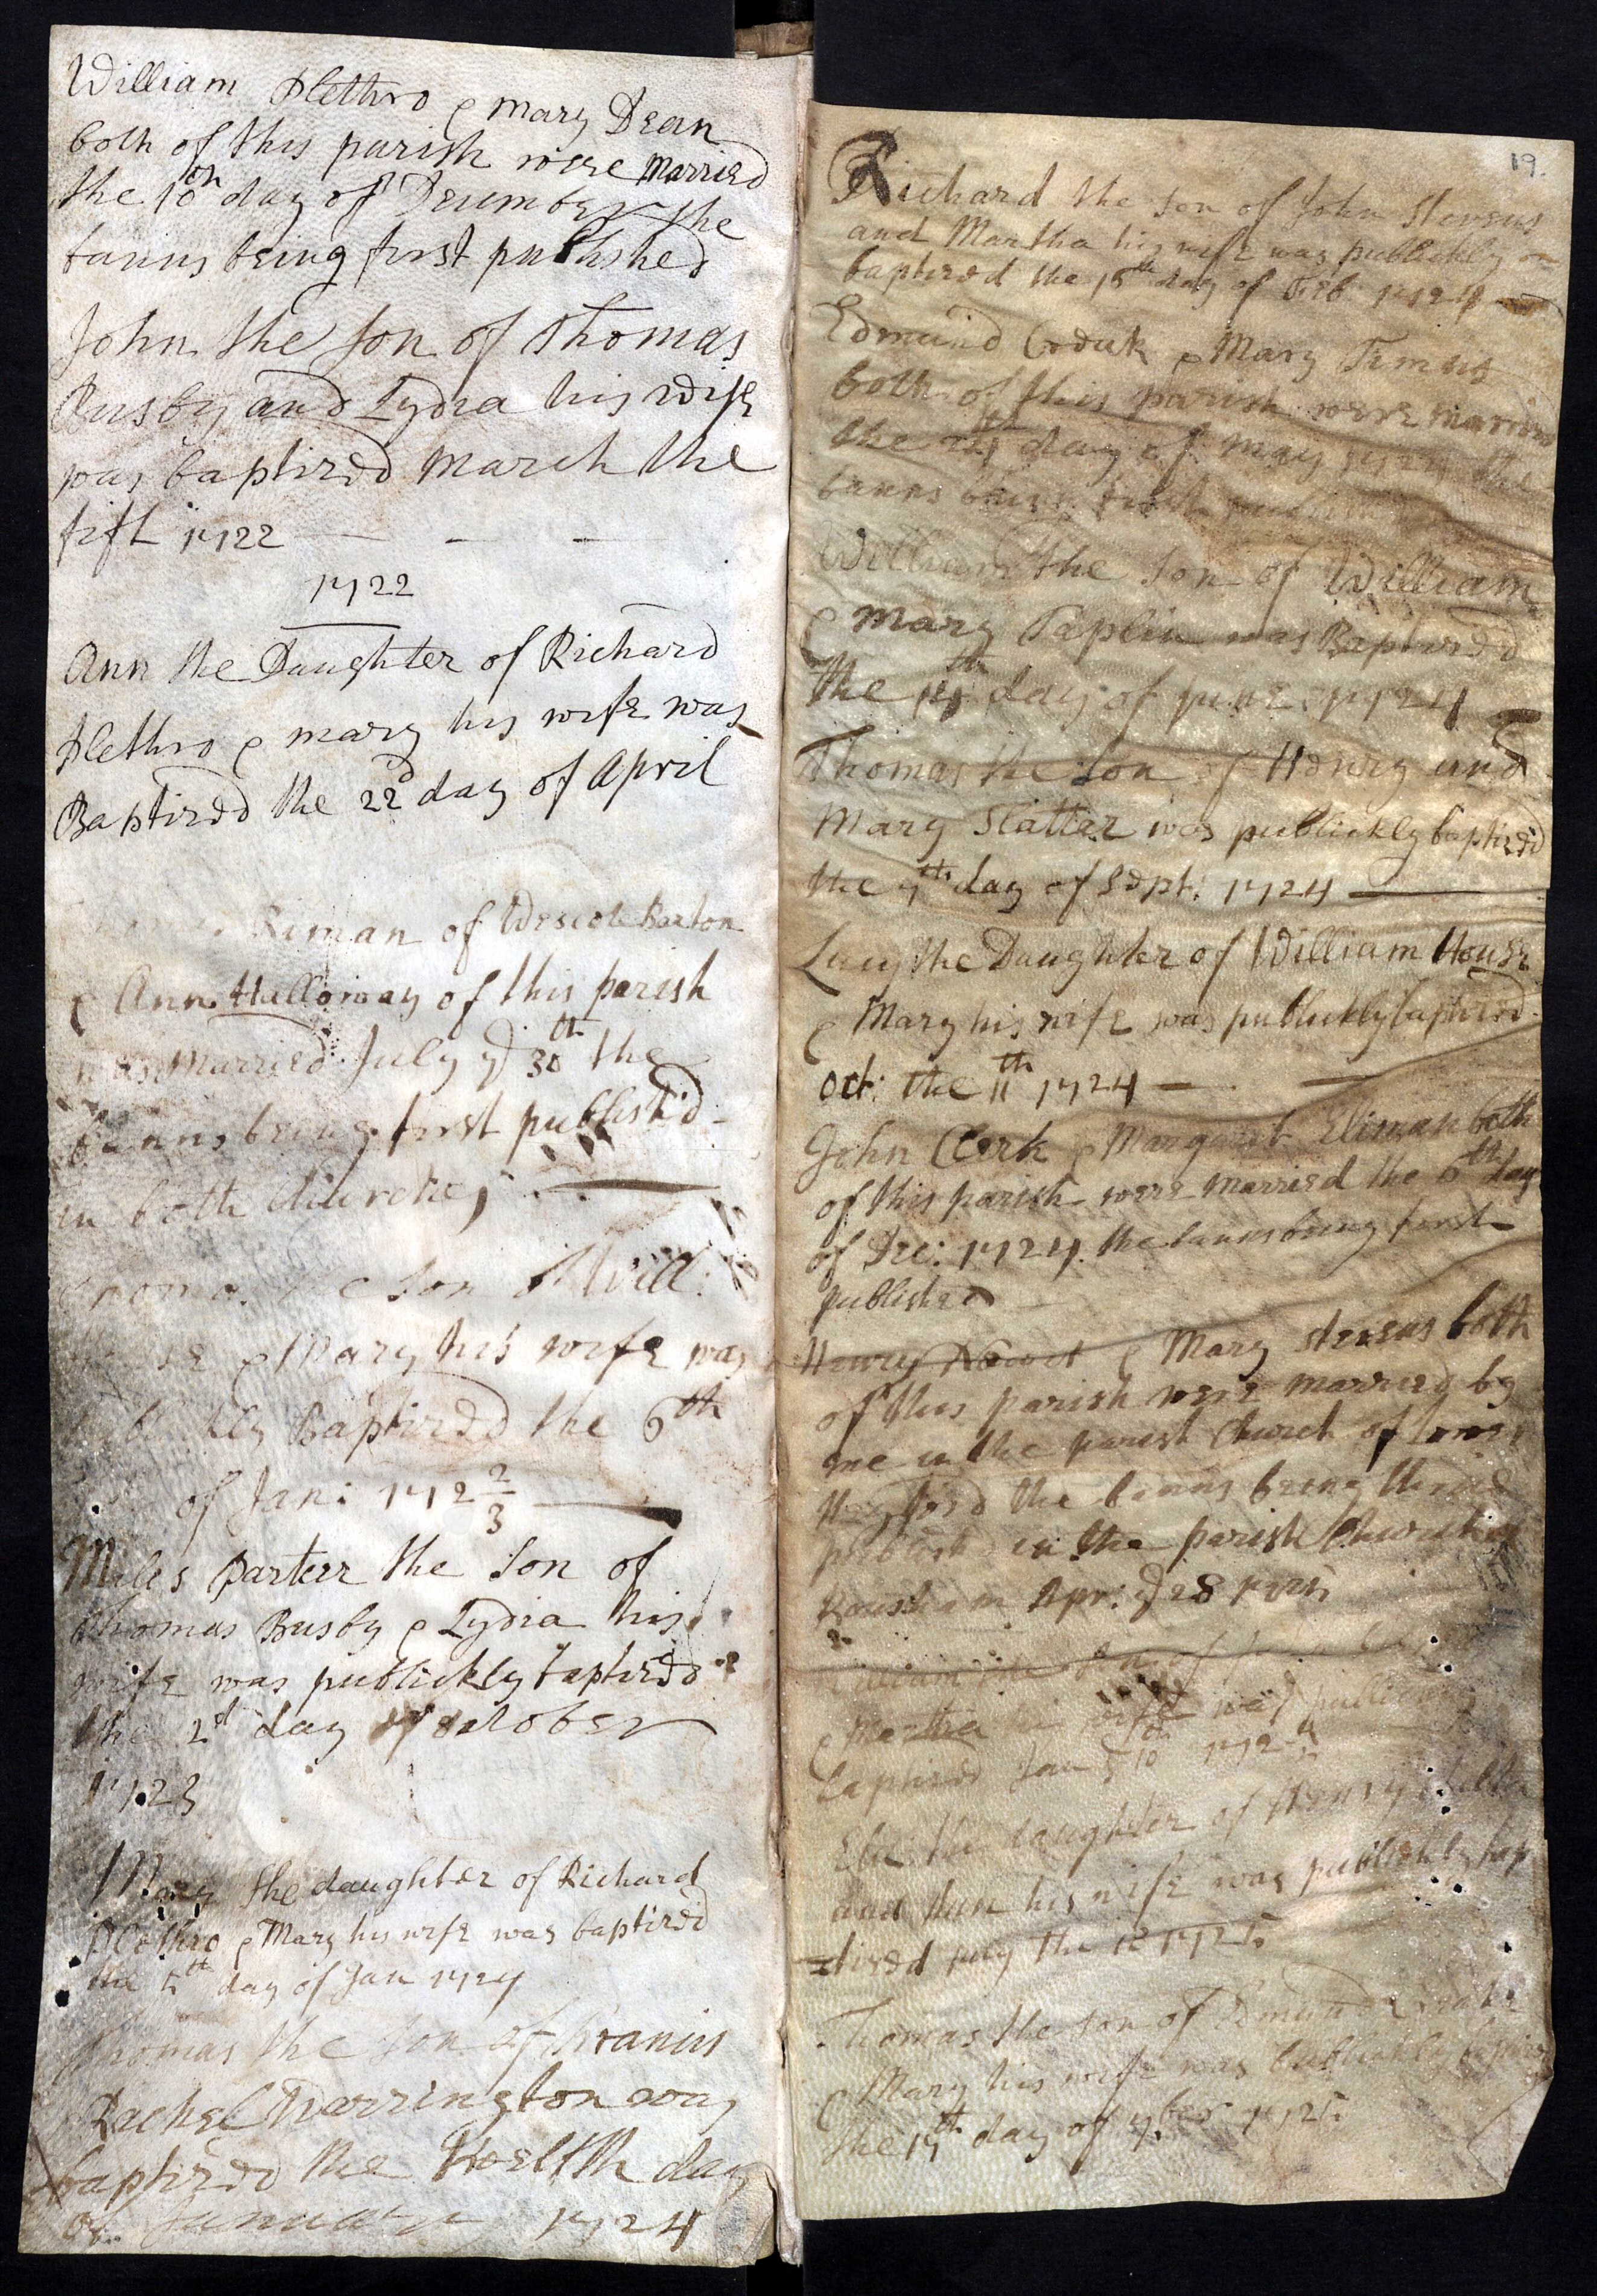 William Plethro & Mary Dean
both of this parish were Married
the 10th day of December the
banns being first published
John the son of Thomas
Busby and Lydia his wife
was baptized March the
fift 1722
1722
Ann the Daughter of Richard
Plethro & mary his wife was
Baptized the 22d day of April
of Wescote Barton
& Ann Halloway of this parish
was Married July ye 30th the
banns being first publish'd
in both churches
the son of Will:
& Mary his wife was
Baptized the 6th
of Jan: 172 2/3
Miles Parterr the son of
Thomas Busby & Lydia his
wife was publickly baptized
the 2d day of October
1723
Mary the daughter of Richard
Plethro & Mary his wife was baptized
the 5th day of Jan 1724
Thomas the Son of Francis
Rachel Warrington was
baptized the twelfth day
of January 1724
19.
Richard the son of John Stevens
and Martha his wife was publickly
baptized the 16th day of Feb: 1724
Edmund & Mary
both of this parish were married
the day of May 1724 the
banns being first
William the son of William
& Mary Taplin was Baptized
the 14th day of June 1724
Thomas the son of Henry and
Mary Slatter was publickly baptized
the 7th day of Sept: 1724
Lucy the Daughter of William House
& Mary his wife was publickly baptized
Oct: the 11th 1724
John Clerk & Margaret Eliman both
of this parish were married the 6th day
of Dec: 1724 the banns being first
published
Henry & Mary Stevens both
of this parish were married by
me in the parish Church of
the banns being
in the parish Church of
Rousham Apr: ye 28 1725
& Martha wife was
baptized Jan
the daughter of Henry
and his wife was publickly bap
=tized the 1725
Thomas the son of Edmund
& Mary his wife was publickly
the 17th day of 7ber 1725